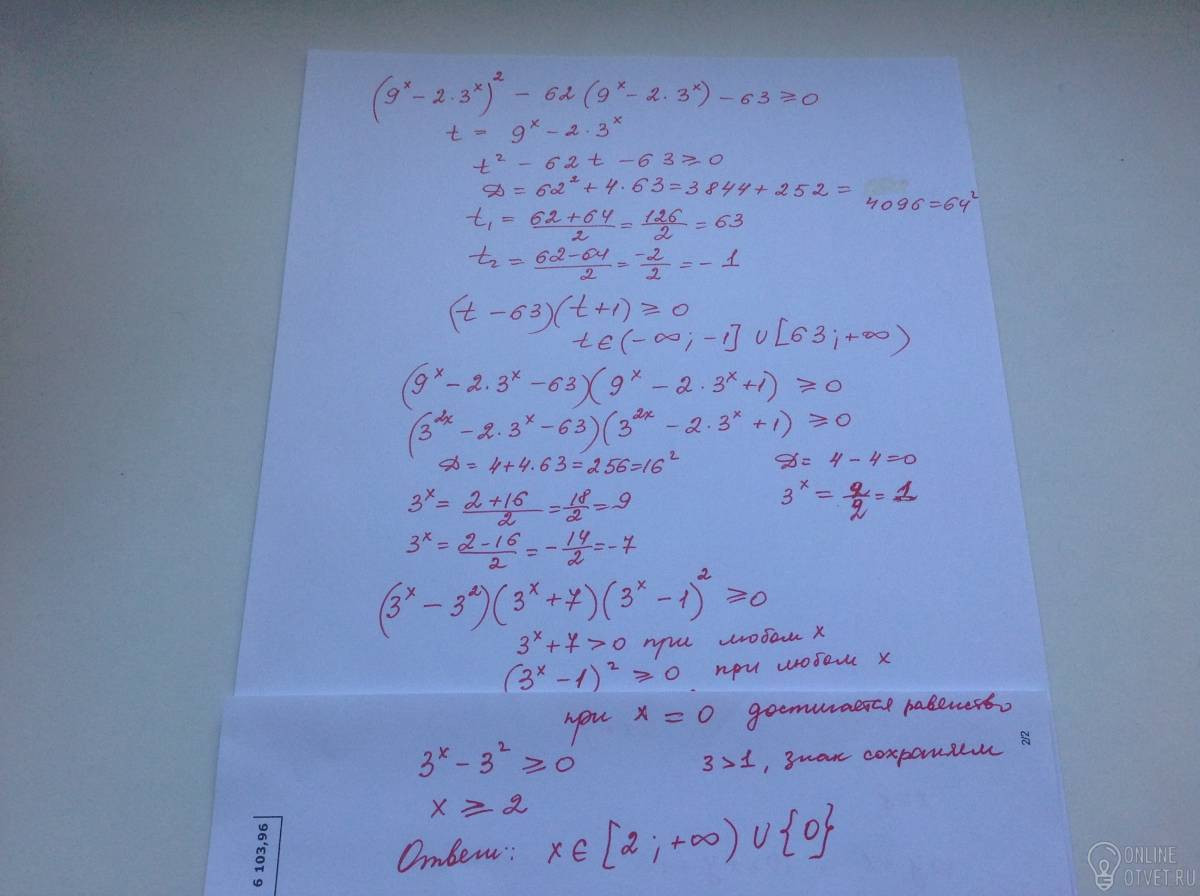 (9^x − 2·3^x)^2 − 62(9^x − 2·3^x) − 63 ≥ 0
t = 9^x − 2·3^x
t^2 − 62t − 63 ≥ 0
D = 62^2 + 4·63 = 3844 + 252 = 4096 = 64^2
t₁ = (62+64)/2 = 126/2 = 63
t₂ = (62−64)/2 = −2/2 = −1
(t − 63)(t + 1) ≥ 0
t ∈ (−∞; −1] ∪ [63; +∞)
(9^x − 2·3^x − 63)(9^x − 2·3^x + 1) ≥ 0
(3^2x − 2·3^x − 63)(3^2x − 2·3^x + 1) ≥ 0
D = 4 + 4·63 = 256 = 16^2 D = 4 − 4 = 0
3^x = (2+16)/2 = 18/2 = 9 3^x = 2/2 = 1
3^x = (2−16)/2 = −14/2 = −7
(3^x − 3^2)(3^x + 7)(3^x − 1)^2 ≥ 0
3^x + 7 > 0 при любом x
(3^x − 1)^2 ≥ 0 при любом x
при x = 0 достигается равенство
2/2
3^x − 3^2 ≥ 0 3 > 1, знак сохраняем
x ≥ 2
Ответ: x ∈ [2; +∞) ∪ {0}
6 103,96
ONLINE
OTVET.RU